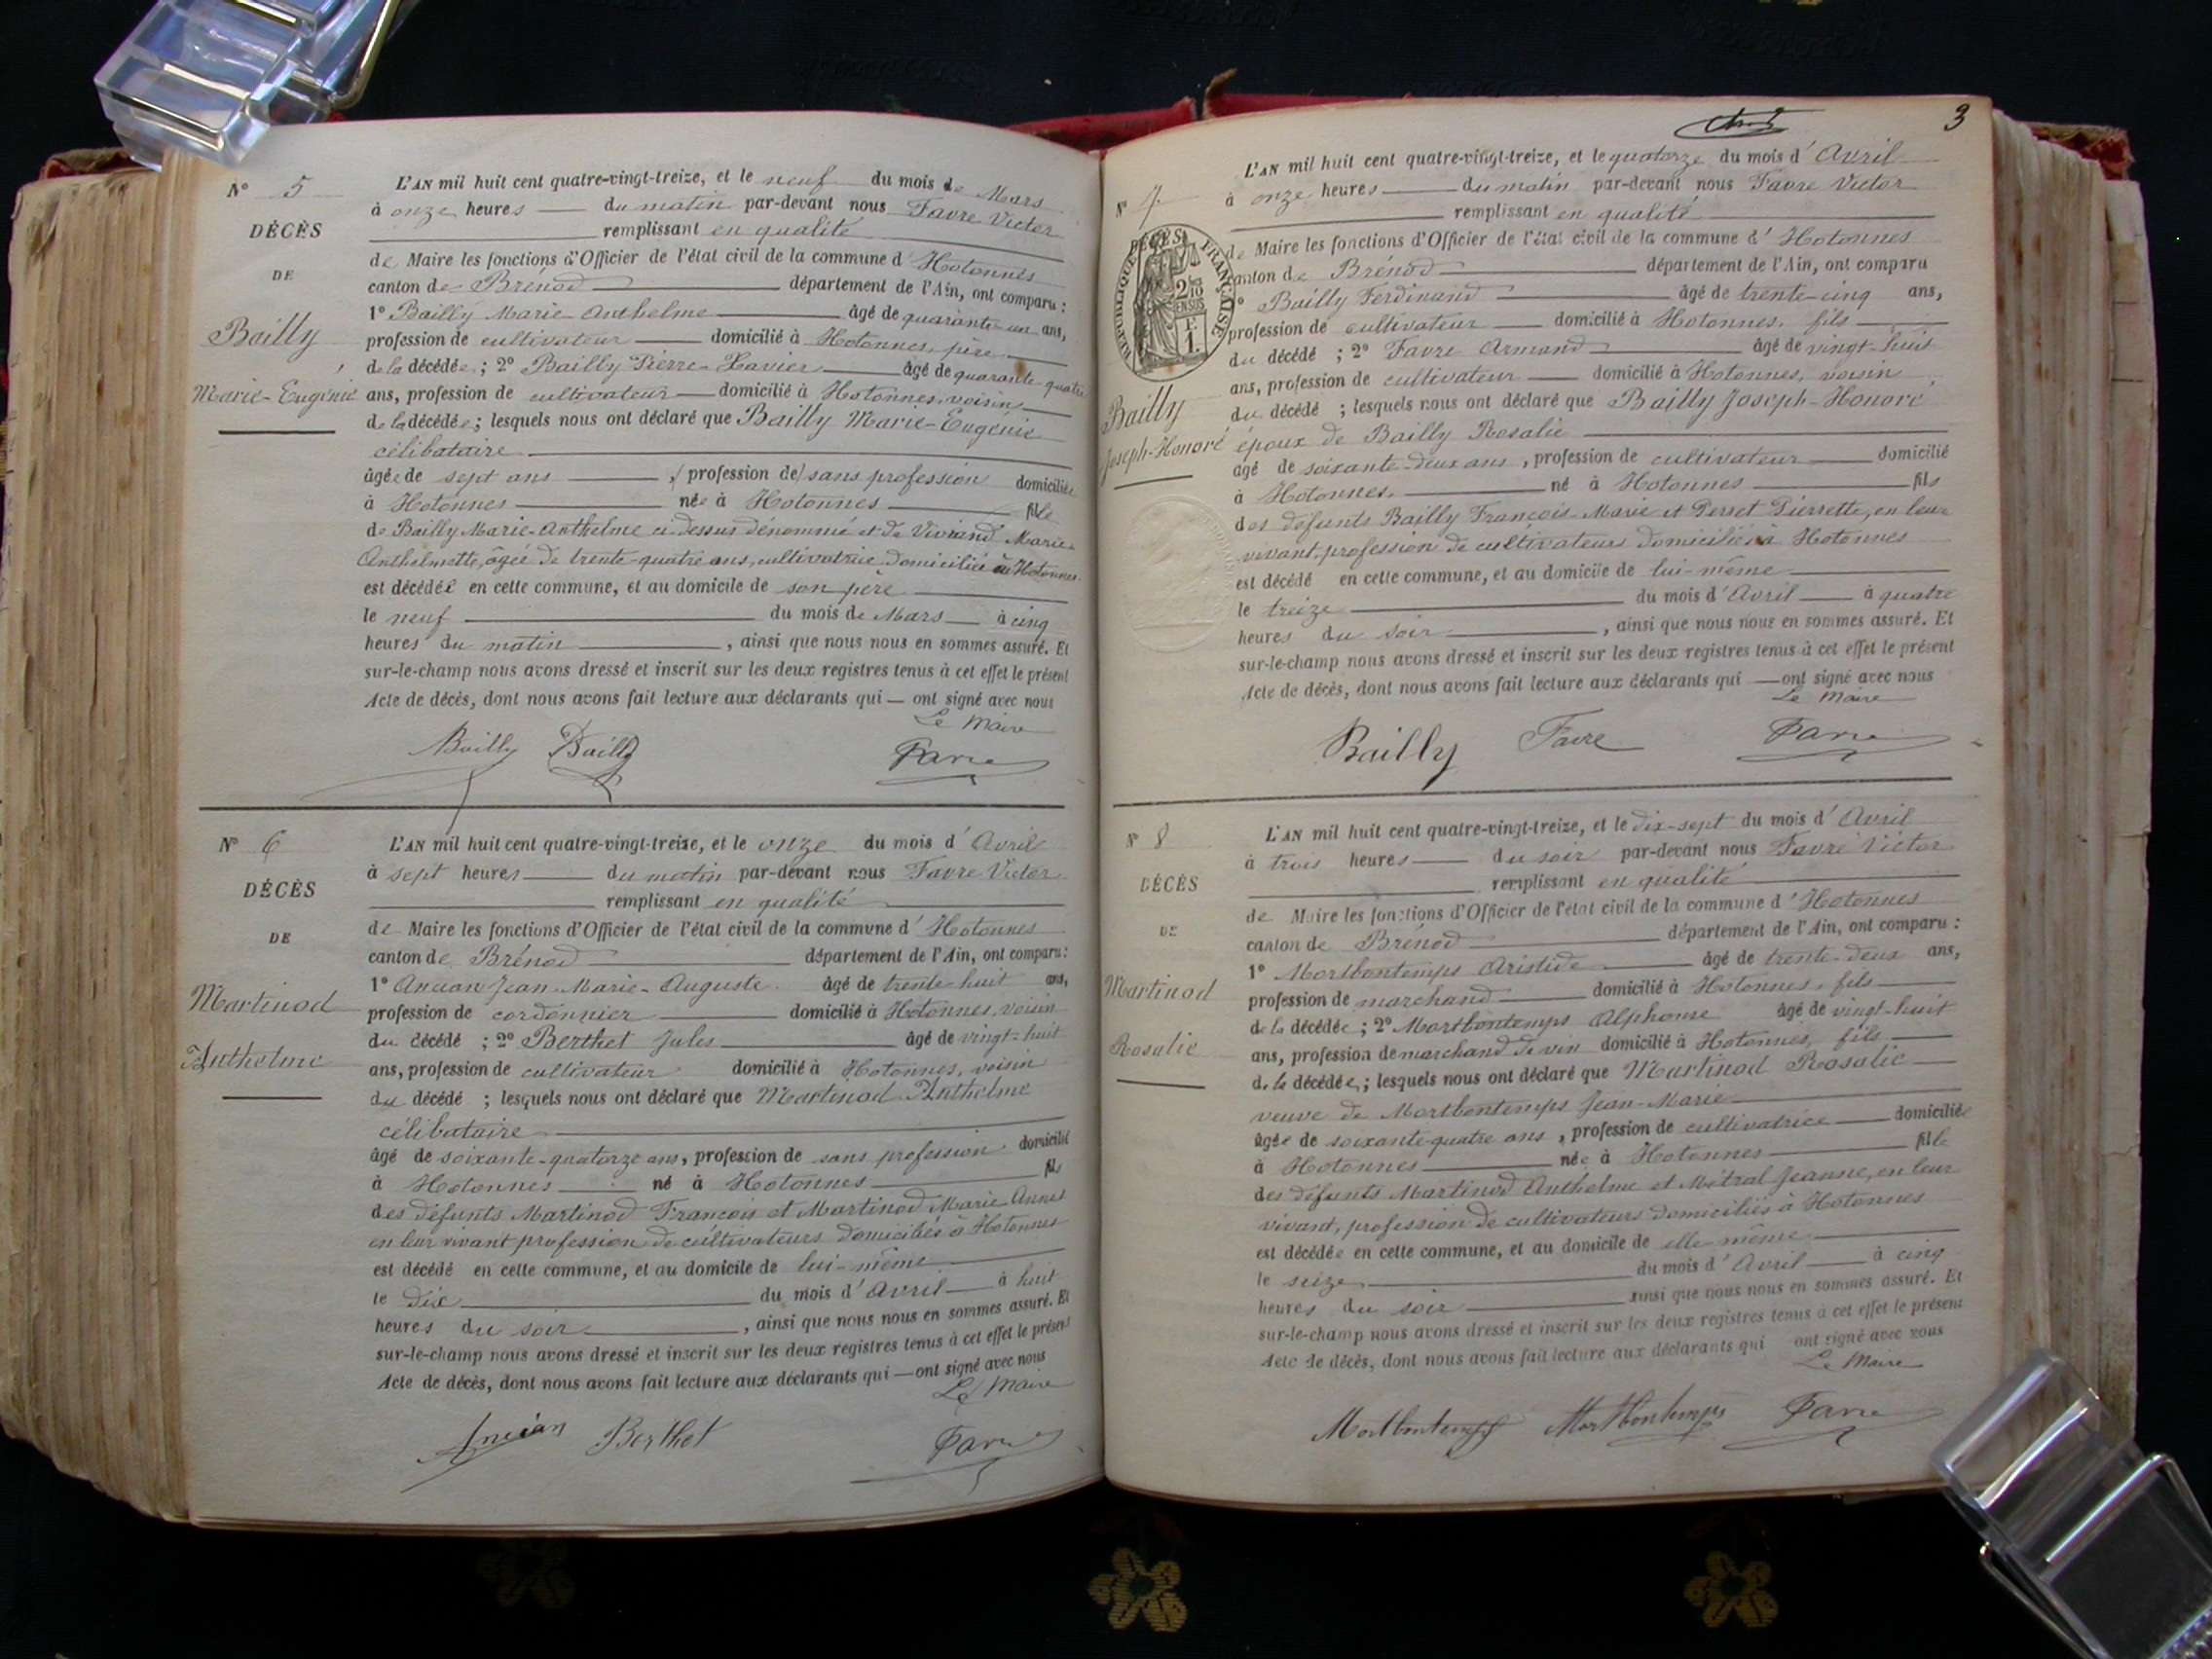 N° 5
DÉCÈS
DE
Bailly
Marie-Eugénie
L'AN mil huit cent quatre-vingt-treize, et le neuf du mois de Mars
à onze heures du matin par-devant nous Favre Victor
remplissant en qualité
de Maire les fonctions d'Officier de l'état civil de la commune d'Hotonnes
canton de Brénod département de l'Ain, ont comparu :
1° Bailly Marie-Anthelme âgé de quarante-un ans,
profession de cultivateur domicilié à Hotonnes, père
de la décédée ; 2° Bailly Pierre-Xavier âgé de quarante-quatre
ans, profession de cultivateur domicilié à Hotonnes, voisin
de la décédée ; lesquels nous ont déclaré que Bailly Marie-Eugénie
célibataire
âgée de sept ans , (profession de) sans profession domiciliée
à Hotonnes née à Hotonnes fille
de Bailly Marie-Anthelme ci-dessus dénommé et de Vivrand Marie-
Anthelmette, âgée de trente-quatre ans, cultivatrice domiciliée à Hotonnes
est décédée en cette commune, et au domicile de son père
le neuf du mois de Mars à cinq
heures du matin , ainsi que nous nous en sommes assuré. Et
sur-le-champ nous avons dressé et inscrit sur les deux registres tenus à cet effet le présent
Acte de décès, dont nous avons fait lecture aux déclarants qui — ont signé avec nous
Le Maire
Bailly Bailly Favre
N° 6
DÉCÈS
DE
Martinod
Anthelme
L'AN mil huit cent quatre-vingt-treize, et le onze du mois d'Avril
à sept heures du matin par-devant nous Favre Victor
remplissant en qualité
de Maire les fonctions d'Officier de l'état civil de la commune d'Hotonnes
canton de Brénod département de l'Ain, ont comparu :
1° Ancian Jean-Marie-Auguste âgé de trente-huit ans,
profession de cordonnier domicilié à Hotonnes, voisin
du décédé ; 2° Berthet Jules âgé de vingt-huit
ans, profession de cultivateur domicilié à Hotonnes, voisin
du décédé ; lesquels nous ont déclaré que Martinod Anthelme
célibataire
âgé de soixante-quatorze ans, profession de sans profession domicilié
à Hotonnes né à Hotonnes fils
des défunts Martinod François et Martinod Marie-Anne
en leur vivant profession de cultivateurs domiciliés à Hotonnes
est décédé en cette commune, et au domicile de lui-même
le dix du mois d'Avril à huit
heures du soir , ainsi que nous nous en sommes assuré. Et
sur-le-champ nous avons dressé et inscrit sur les deux registres tenus à cet effet le présent
Acte de décès, dont nous avons fait lecture aux déclarants qui — ont signé avec nous
Le Maire
Ancian Berthet Favre
3
N° 7
RÉPUBLIQUE FRANÇAISE
Bailly
Joseph-Honoré
L'AN mil huit cent quatre-vingt-treize, et le quatorze du mois d'Avril
à onze heures du matin par-devant nous Favre Victor
remplissant en qualité
de Maire les fonctions d'Officier de l'état civil de la commune d'Hotonnes
canton de Brénod département de l'Ain, ont comparu
1° Bailly Ferdinand âgé de trente-cinq ans,
profession de cultivateur domicilié à Hotonnes, fils
du décédé ; 2° Favre Armand âgé de vingt-huit
ans, profession de cultivateur domicilié à Hotonnes, voisin
du décédé ; lesquels nous ont déclaré que Bailly Joseph-Honoré
époux de Bailly Rosalie
âgé de soixante-deux ans, profession de cultivateur domicilié
à Hotonnes, né à Hotonnes fils
des défunts Bailly François-Marie et Perret Pierrette, en leur
vivant, profession de cultivateurs domiciliés à Hotonnes
est décédé en cette commune, et au domicile de lui-même
le treize du mois d'Avril à quatre
heures du soir , ainsi que nous nous en sommes assuré. Et
sur-le-champ nous avons dressé et inscrit sur les deux registres tenus à cet effet le présent
Acte de décès, dont nous avons fait lecture aux déclarants qui — ont signé avec nous
Le Maire
Bailly Favre Favre
N° 8
DÉCÈS
DE
Martinod
Rosalie
L'AN mil huit cent quatre-vingt-treize, et le dix-sept du mois d'Avril
à trois heures du soir par-devant nous Favre Victor
remplissant en qualité
de Maire les fonctions d'Officier de l'état civil de la commune d'Hotonnes
canton de Brénod département de l'Ain, ont comparu :
1° Mortbontemps Aristide âgé de trente-deux ans,
profession de marchand domicilié à Hotonnes, fils
de la décédée ; 2° Mortbontemps Alphonse âgé de vingt-huit
ans, profession de marchand de vin domicilié à Hotonnes, fils
de la décédée ; lesquels nous ont déclaré que Martinod Rosalie
veuve de Mortbontemps Jean-Marie
âgée de soixante-quatre ans, profession de cultivatrice domiciliée
à Hotonnes née à Hotonnes fille
des défunts Martinod Anthelme et Métral Jeanne, en leur
vivant, profession de cultivateurs domiciliés à Hotonnes
est décédée en cette commune, et au domicile de elle-même
le seize du mois d'Avril à cinq
heures du soir ainsi que nous nous en sommes assuré. Et
sur-le-champ nous avons dressé et inscrit sur les deux registres tenus à cet effet le présent
Acte de décès, dont nous avons fait lecture aux déclarants qui ont signé avec nous
Le Maire
Mortbontemps Mortbontemps Favre